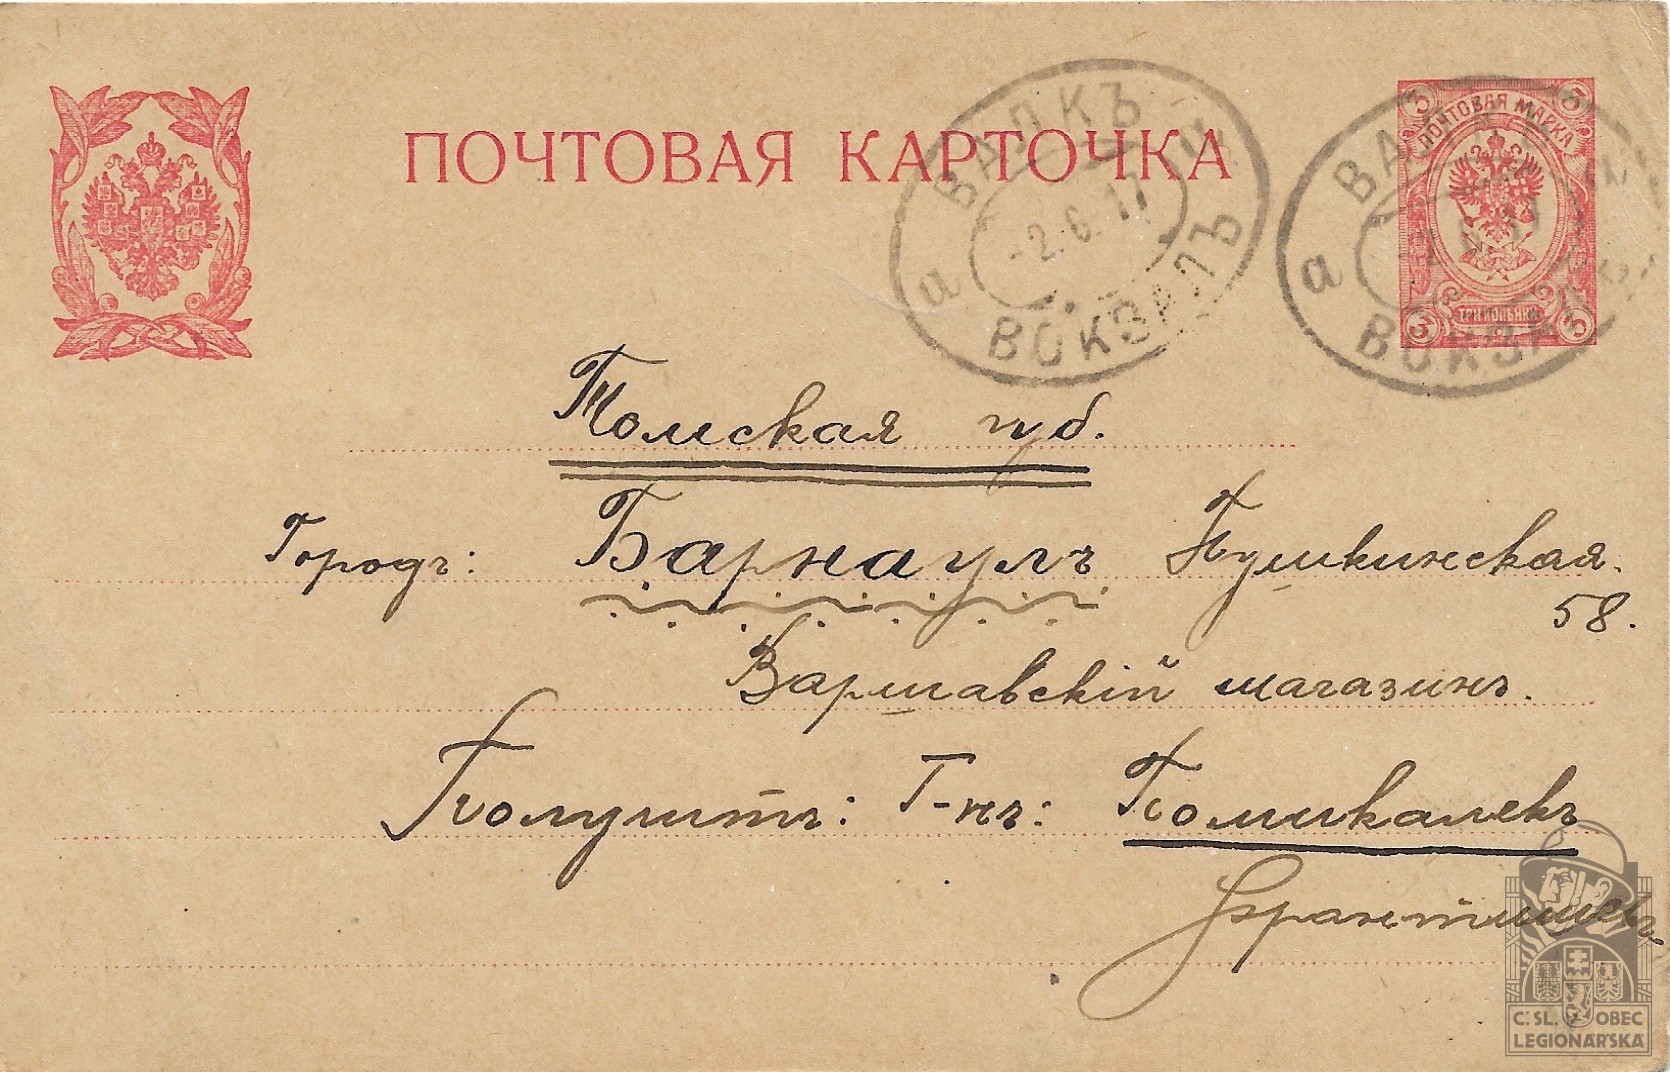 ПОЧТОВАЯ КАРТОЧКА
ВАЛКЪ
-2.6.17
а
ВОКЗАЛЪ
ПОЧТОВАЯ МАРКА
3 3
3 3
ТРИ КОПѢЙКИ
ВАЛКЪ
а
ВОКЗАЛЪ
Томская губ.
Городъ: Барнаулъ Пушкинская.
58.
Варшавскій магазинъ.
Получитъ: Г-нъ: Помикалекъ
Франтишекъ
Č. SL. OBEC
LEGIONÁŘSKÁ